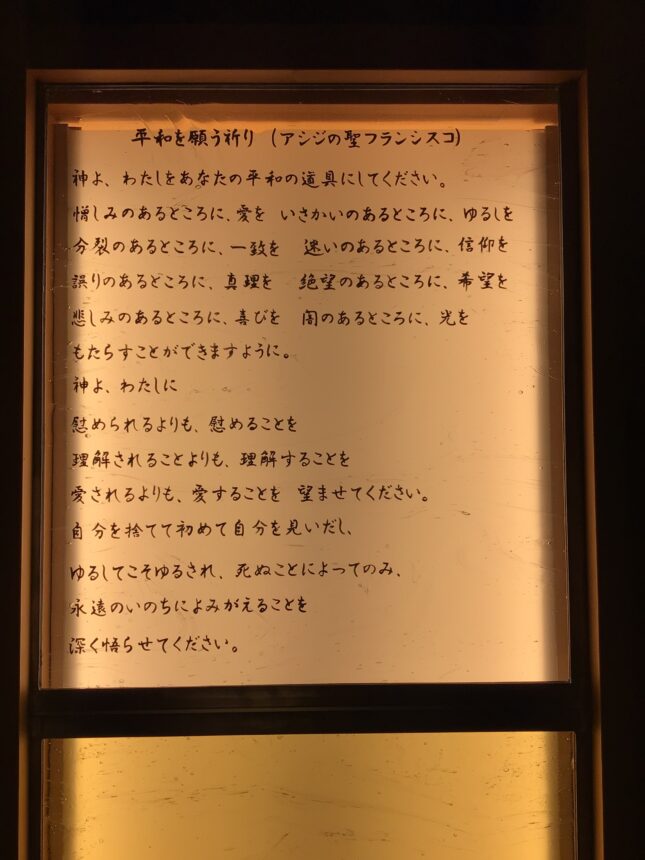 平和を願う祈り (アシジの聖フランシスコ)
神よ、わたしをあなたの平和の道具にしてください。
憎しみのあるところに、愛を いさかいのあるところに、ゆるしを
分裂のあるところに、一致を 迷いのあるところに、信仰を
誤りのあるところに、真理を 絶望のあるところに、希望を
悲しみのあるところに、喜びを 闇のあるところに、光を
もたらすことができますように。
神よ、わたしに
慰められるよりも、慰めることを
理解されることよりも、理解することを
愛されるよりも、愛することを 望ませてください。
自分を捨てて初めて自分を見いだし、
ゆるしてこそゆるされ、死ぬことによってのみ、
永遠のいのちによみがえることを
深く悟らせてください。